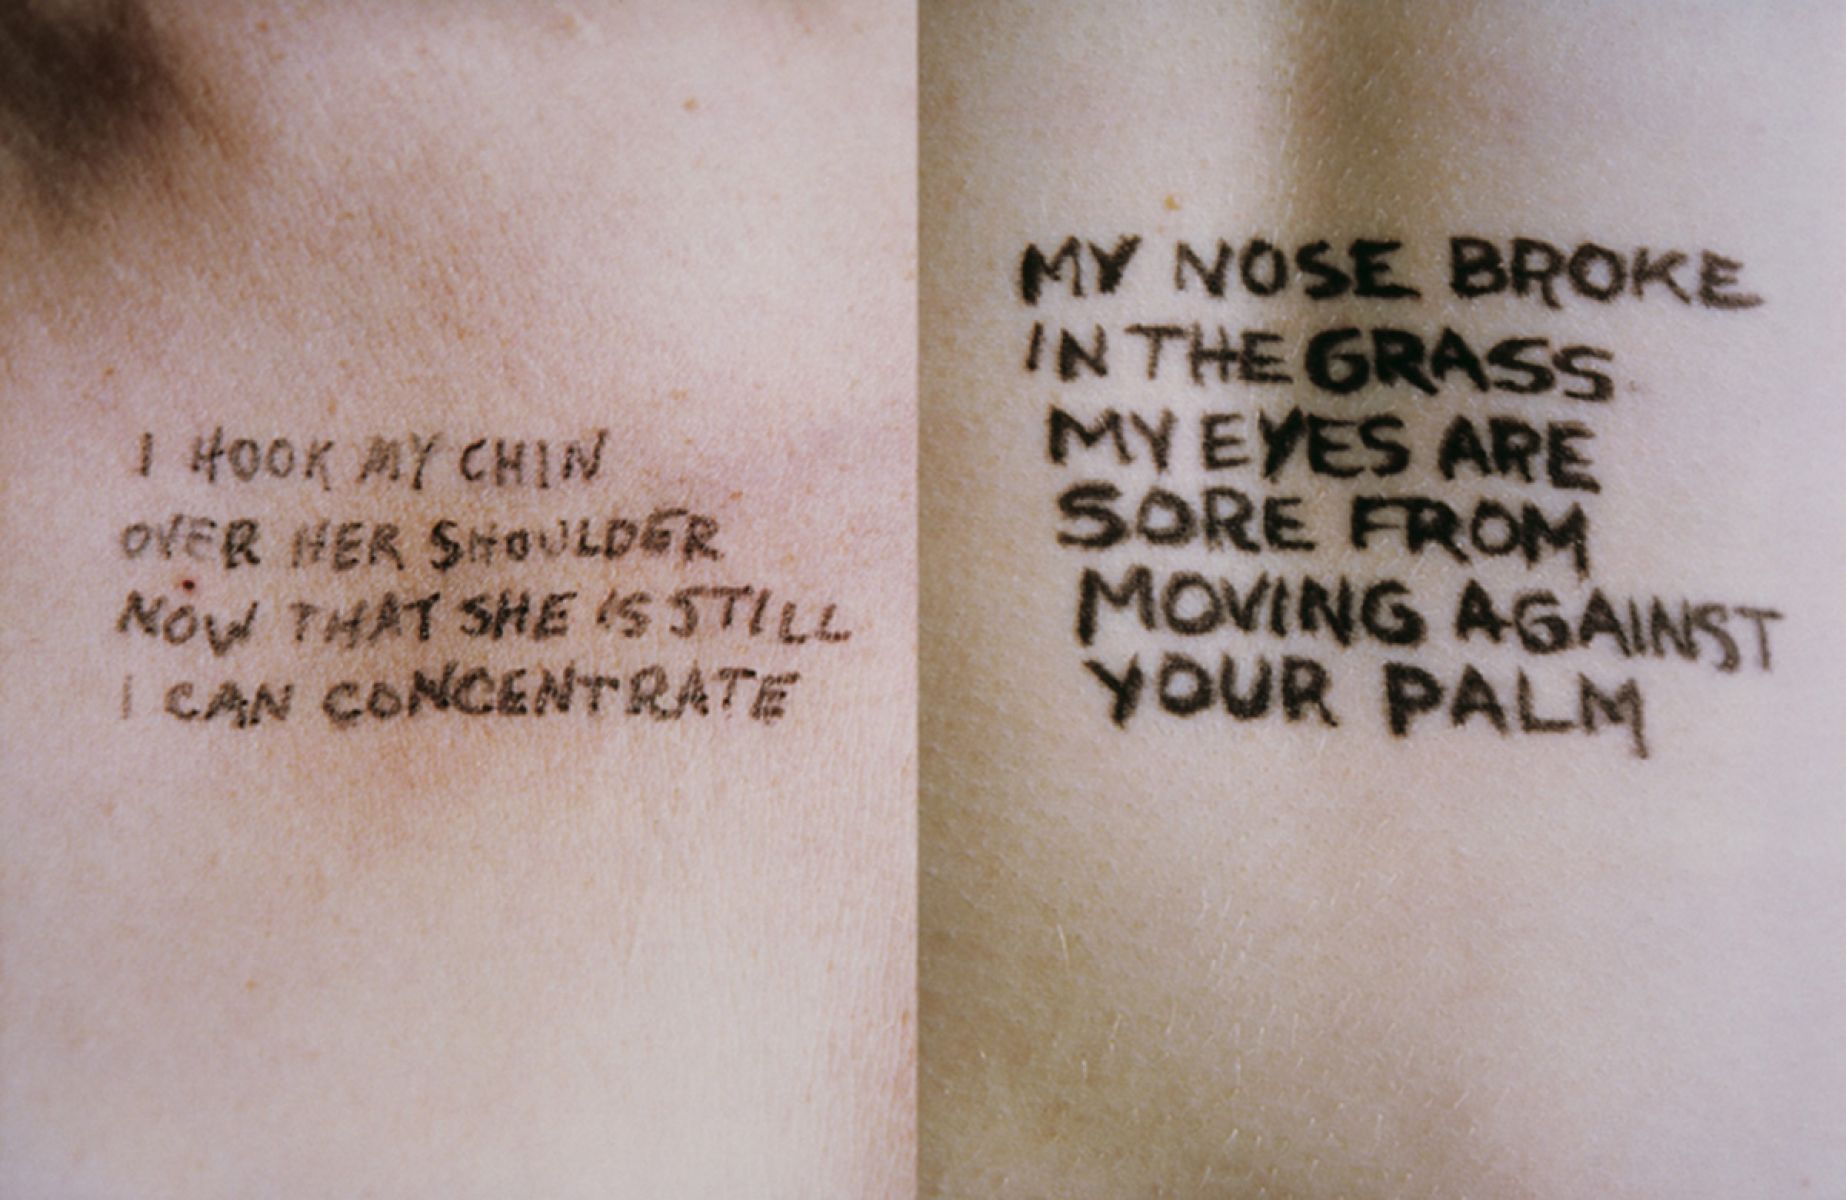 I HOOK MY CHIN
OVER HER SHOULDER
NOW THAT SHE IS STILL
I CAN CONCENTRATE
MY NOSE BROKE
IN THE GRASS
MY EYES ARE
SORE FROM
MOVING AGAINST
YOUR PALM